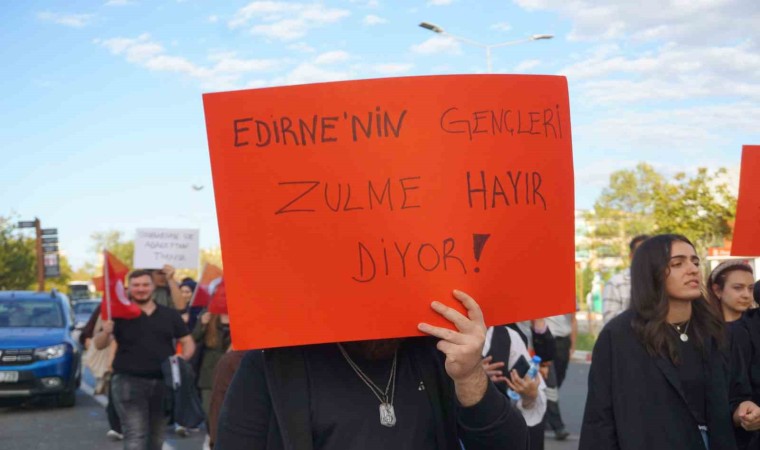 EDİRNE'NİN GENÇLERİ
ZULME HAYIR
DİYOR!